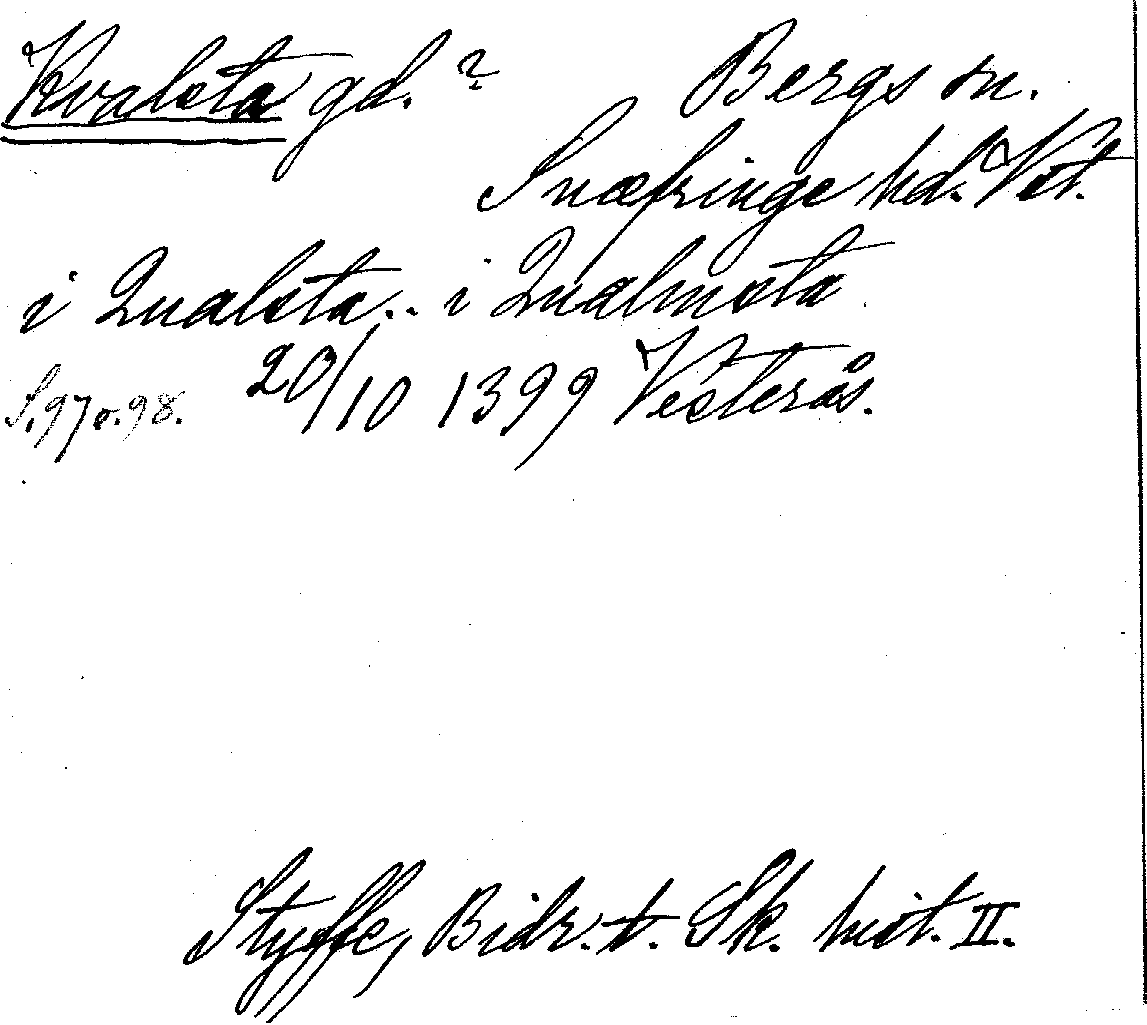 Kvalsta gd. ? Bergs sn.
Snæfringe hd. Vst.
i Qualsta.. i Qualmsta
S. 97 o. 98. 20/10 1399 Vesterås.
Styffe, Bidr. t. Sk. hist. II.